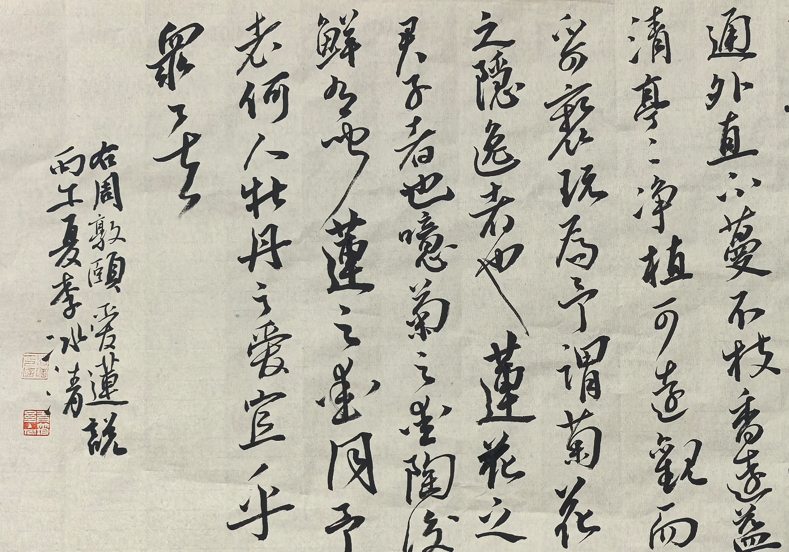 通外直不蔓不枝香遠益
清亭〻净植可遠觀而
不可褻玩焉予謂菊花
之隱逸者也蓮花之
君子者也噫菊之愛陶後
鮮有聞蓮之愛同予
者何人牡丹之愛宜乎
眾矣
右周敦頤愛蓮説
丙午夏李冰清